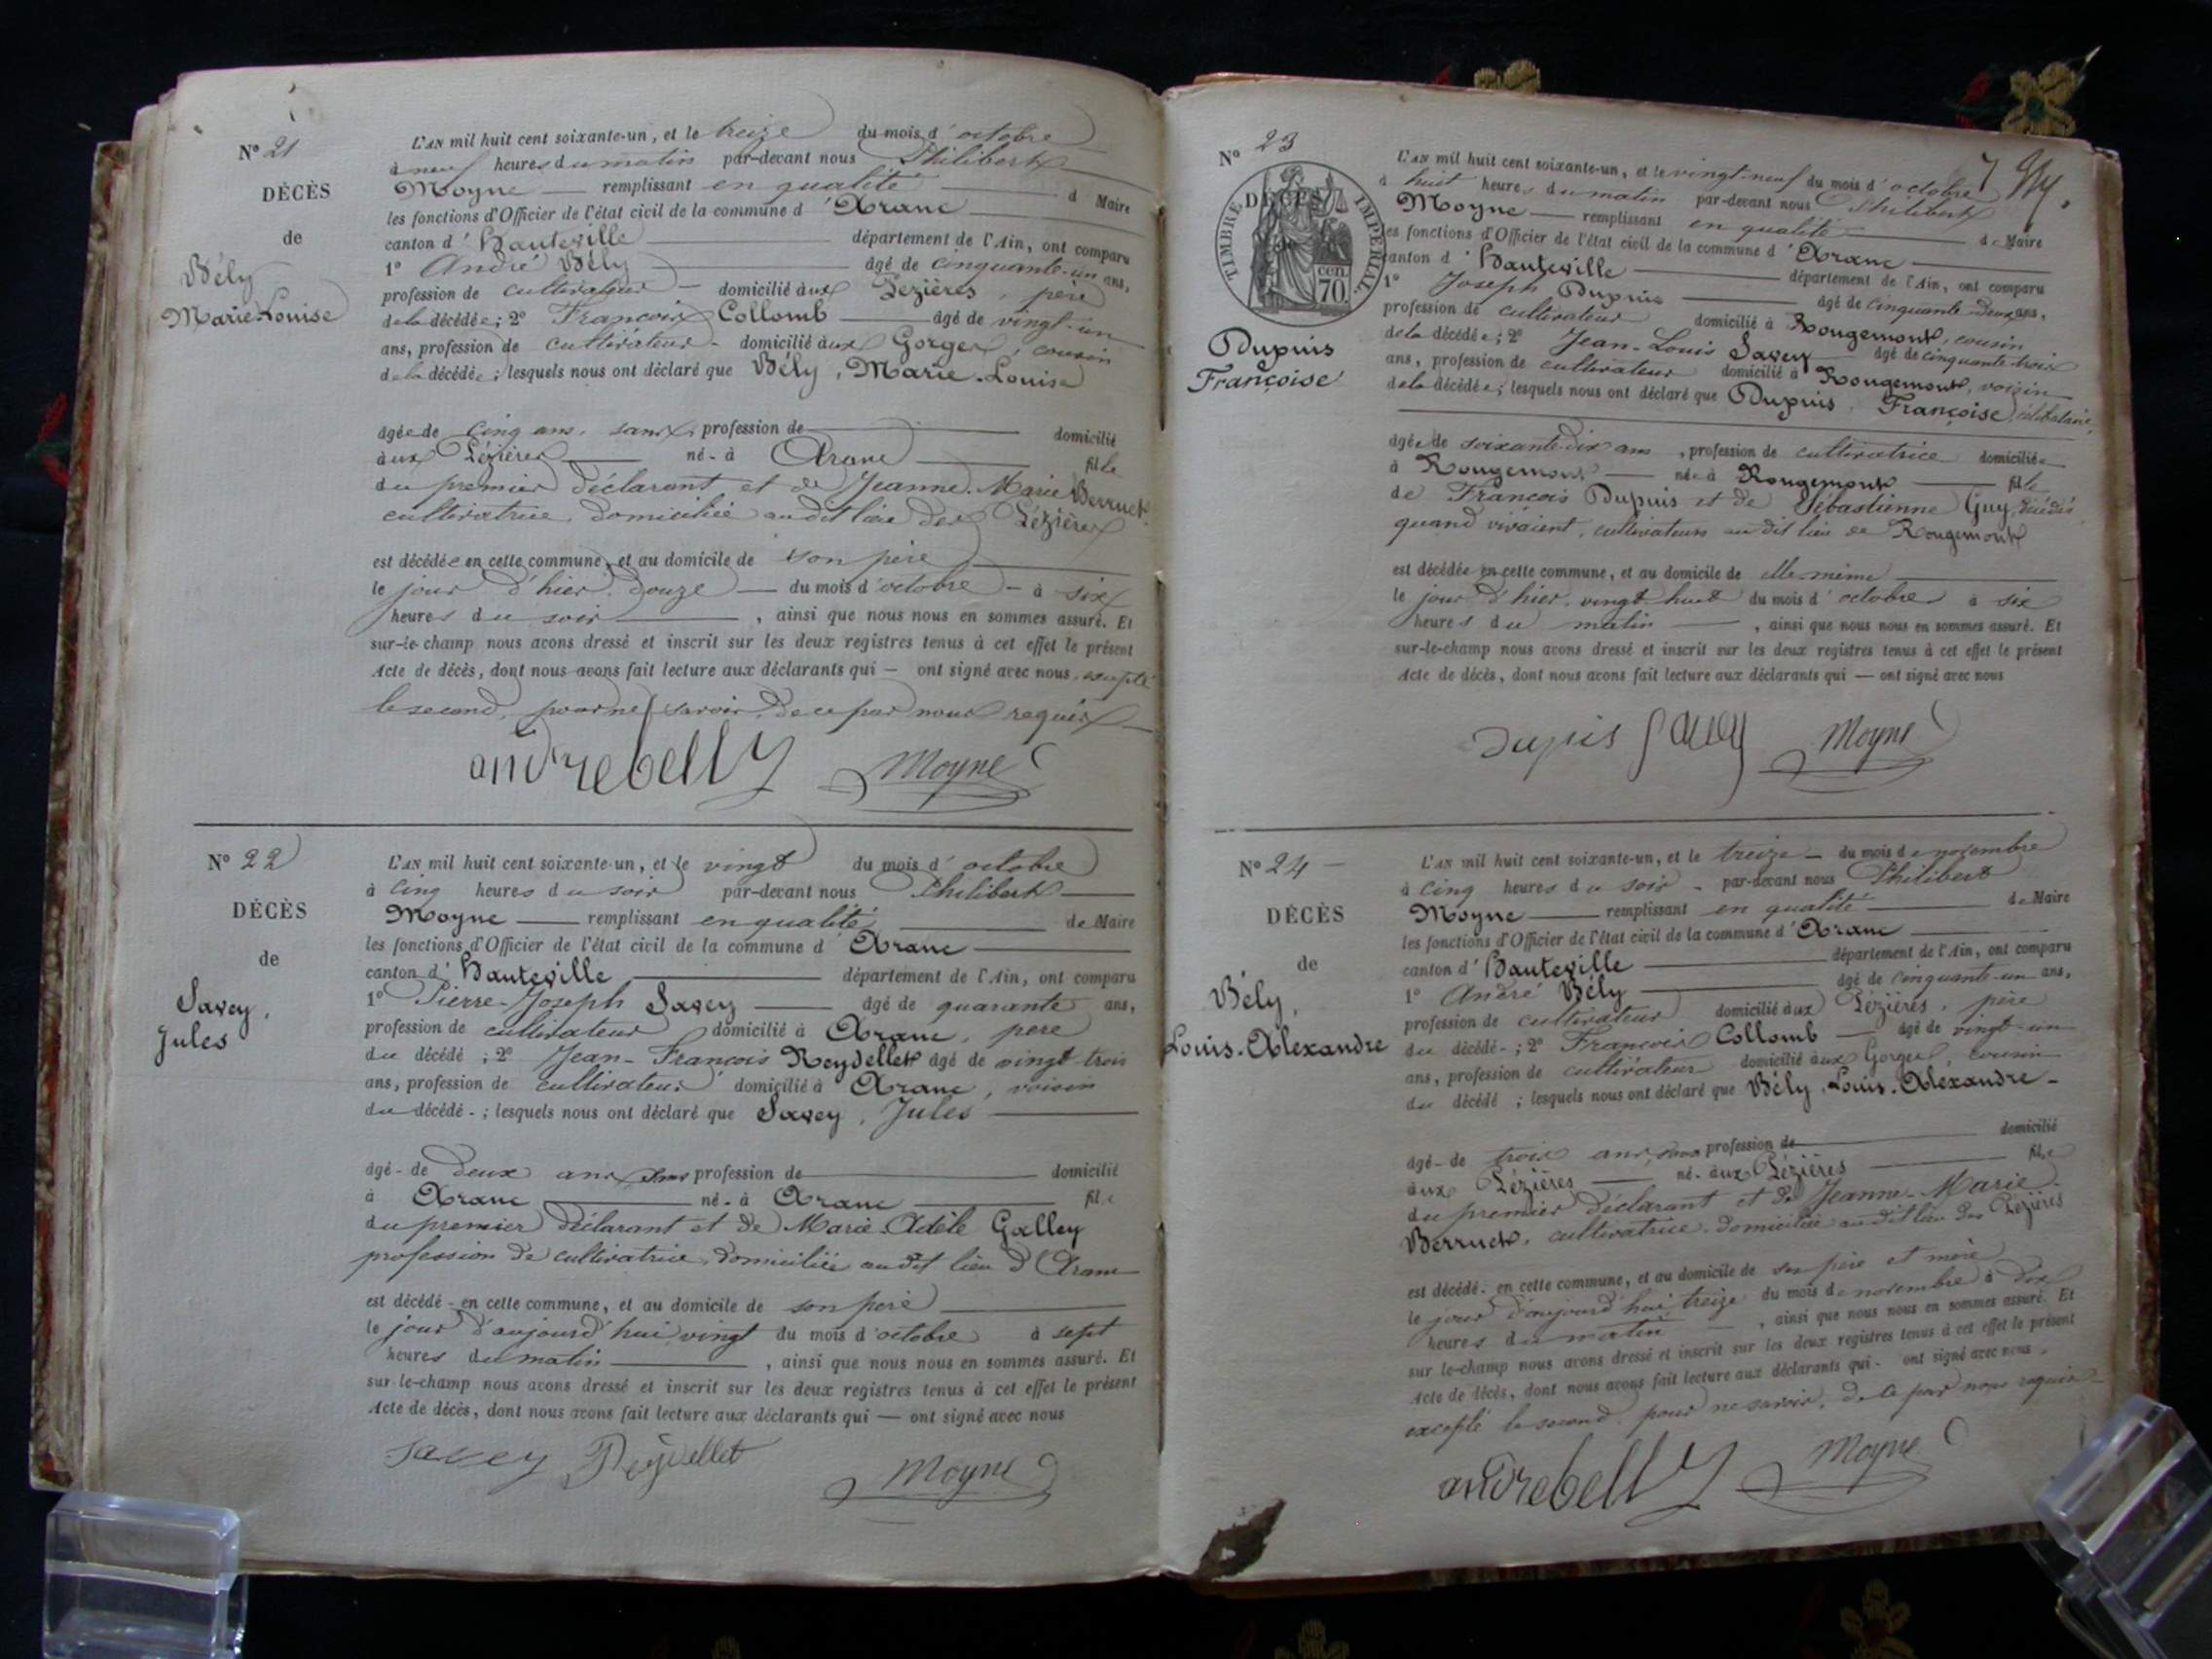 N° 21
DÉCÈS
de
Bély
Marie-Louise
L'AN mil huit cent soixante-un, et le treize du mois d'octobre
à neuf heures du matin par-devant nous Philibert
Moyne remplissant en qualité d Maire
les fonctions d'Officier de l'état civil de la commune d'Aranc
canton d'Hauteville département de l'Ain, ont comparu
1° André Bély âgé de cinquante-un ans,
profession de cultivateur domicilié aux Lézières, père
de la décédée; 2° François Collomb âgé de vingt-un
ans, profession de cultivateur domicilié aux Gorges, cousin
de la décédée; lesquels nous ont déclaré que Bély, Marie-Louise
âgée de cinq ans, sans profession de domicilié
aux Lézières né-à Aranc fille
du premier déclarant et de Jeanne-Marie Berruet
cultivatrice, domiciliée audit lieu des Lézières
est décédée en cette commune, et au domicile de son père
le jour d'hier douze du mois d'octobre à six
heures du soir, ainsi que nous nous en sommes assuré. Et
sur-le-champ nous avons dressé et inscrit sur les deux registres tenus à cet effet le présent
Acte de décès, dont nous avons fait lecture aux déclarants qui — ont signé avec nous, excepté
le second, pour ne savoir, de ce par nous requis
andrebelly Moyne
N° 22
DÉCÈS
de
Savey,
Jules
L'AN mil huit cent soixante-un, et le vingt du mois d'octobre
à cinq heures du soir par-devant nous Philibert
Moyne remplissant en qualité de Maire
les fonctions d'Officier de l'état civil de la commune d'Aranc
canton d'Hauteville département de l'Ain, ont comparu
1° Pierre-Joseph Savey âgé de quarante ans,
profession de cultivateur domicilié à Aranc, père
du décédé; 2° Jean-François Reydellet âgé de vingt-trois
ans, profession de cultivateur domicilié à Aranc, voisin
du décédé-; lesquels nous ont déclaré que Savey, Jules
âgé-de deux ans, sans profession de domicilié
à Aranc né-à Aranc fils
du premier déclarant et de Marie-Adèle Galley
profession de cultivatrice, domiciliée audit lieu d'Aranc
est décédé-en cette commune, et au domicile de son père
le jour d'aujourd'hui vingt du mois d'octobre à sept
heures du matin, ainsi que nous nous en sommes assuré. Et
sur-le-champ nous avons dressé et inscrit sur les deux registres tenus à cet effet le présent
Acte de décès, dont nous avons fait lecture aux déclarants qui — ont signé avec nous
Savey Reydellet Moyne
7
N° 23
TIMBRE IMPERIAL
DÉCÈS
70 cen.
Dupuis
Françoise
L'AN mil huit cent soixante-un, et le vingt-neuf du mois d'octobre
à huit heures du matin par-devant nous Philibert
Moyne remplissant en qualité de Maire
les fonctions d'Officier de l'état civil de la commune d'Aranc
canton d'Hauteville département de l'Ain, ont comparu
1° Joseph Dupuis âgé de cinquante-deux ans,
profession de cultivateur domicilié à Rougemont, cousin
de la décédée; 2° Jean-Louis Savey âgé de cinquante-trois
ans, profession de cultivateur domicilié à Rougemont, voisin
de la décédée; lesquels nous ont déclaré que Dupuis, Françoise, célibataire,
âgée de soixante-dix ans, profession de cultivatrice domiciliée
à Rougemont née à Rougemont fille
de François Dupuis et de Sébastienne Guy, décédés
quand vivaient, cultivateurs au dit lieu de Rougemont
est décédée en cette commune, et au domicile de elle-même
le jour d'hier, vingt-huit du mois d'octobre à six
heures du matin, ainsi que nous nous en sommes assuré. Et
sur-le-champ nous avons dressé et inscrit sur les deux registres tenus à cet effet le présent
Acte de décès, dont nous avons fait lecture aux déclarants qui — ont signé avec nous
Dupis Savey Moyne
N° 24
DÉCÈS
de
Bély,
Louis-Alexandre
L'AN mil huit cent soixante-un, et le treize du mois de novembre
à cinq heures du soir par-devant nous Philibert
Moyne remplissant en qualité de Maire
les fonctions d'Officier de l'état civil de la commune d'Aranc
canton d'Hauteville département de l'Ain, ont comparu
1° André Bély âgé de cinquante-un ans,
profession de cultivateur domicilié aux Lézières, père
du décédé-; 2° François Collomb âgé de vingt-un
ans, profession de cultivateur domicilié aux Gorges, cousin
du décédé; lesquels nous ont déclaré que Bély, Louis-Alexandre
âgé-de trois ans, sans profession de domicilié
aux Lézières né-aux Lézières fils
du premier déclarant et de Jeanne-Marie
Berruet, cultivatrice, domiciliée audit lieu des Lézières
est décédé-en cette commune, et au domicile de ses père et mère
le jour d'aujourd'hui treize du mois de novembre à dix
heures du matin, ainsi que nous nous en sommes assuré. Et
sur le-champ nous avons dressé et inscrit sur les deux registres tenus à cet effet le présent
Acte de décès, dont nous avons fait lecture aux déclarants qui-ont signé avec nous,
excepté le second, pour ne savoir, de ce par nous requis
andrebelly Moyne